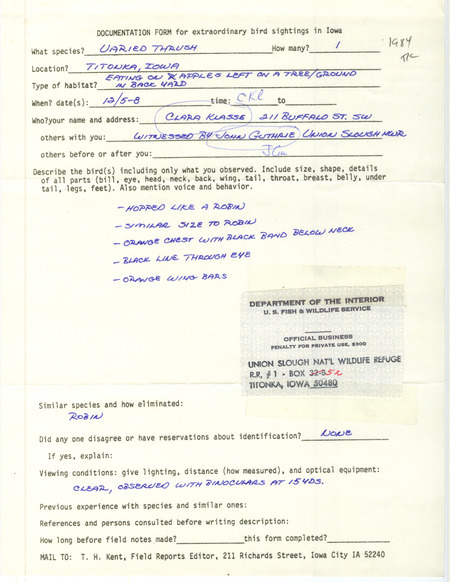 DOCUMENTATION FORM for extraordinary bird sightings in Iowa
What species? VARIED THRUSH How many? 1
1984
Location? TITONKA, IOWA
Type of habitat? EATING ON APPLES LEFT ON A TREE/GROUND
IN BACK YARD
When? date(s): 12/5-8 time: CKl to
Who?your name and address: CLARA KLASSE 211 BUFFALO ST. SW
others with you: WITNESSED BY JOHN GUTHRIE UNION SLOUGH NWR
others before or after you:
Describe the bird(s) including only what you observed. Include size, shape, details
of all parts (bill, eye, head, neck, back, wing, tail, throat, breast, belly, under
tail, legs, feet). Also mention voice and behavior.
- HOPPED LIKE A ROBIN
- SIMILAR SIZE TO ROBIN
- ORANGE CHEST WITH BLACK BAND BELOW NECK
- BLACK LINE THROUGH EYE
- ORANGE WING BARS
DEPARTMENT OF THE INTERIOR
U. S. FISH & WILDLIFE SERVICE
OFFICIAL BUSINESS
PENALTY FOR PRIVATE USE, $300
UNION SLOUGH NAT'L WILDLIFE REFUGE
R.R. # 1 - BOX 52
TITONKA, IOWA 50480
Similar species and how eliminated:
ROBIN
Did any one disagree or have reservations about identification? NONE
If yes, explain:
Viewing conditions: give lighting, distance (how measured), and optical equipment:
CLEAR, OBSERVED WITH BINOCULARS AT 15YDS.
Previous experience with species and similar ones:
References and persons consulted before writing description:
How long before field notes made? this form completed?
MAIL TO: T. H. Kent, Field Reports Editor, 211 Richards Street, Iowa City IA 52240